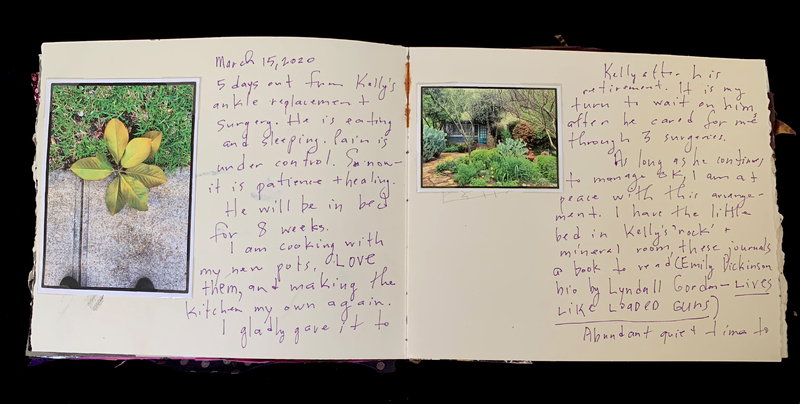 March 15, 2020
5 days out from Kelly's
ankle replacement
surgery. He is eating
and sleeping. Pain is
under control. So now—
it is patience + healing.
He will be in bed
for 8 weeks.
I am cooking with
my new pots, LOVE
them, and making the
kitchen my own again.
I gladly gave it to
Kelly after his
retirement. It is my
turn to wait on him,
after he cared for me
through 3 surgeries.
As long as he continues
to manage OK, I am at
peace with this arrange-
ment. I have the little
bed in Kelly's "rock" +
mineral room, these journals
a book to read (Emily Dickinson
bio by Lyndall Gordon— LIVES
LIKE LOADED GUNS)
Abundant quiet time to